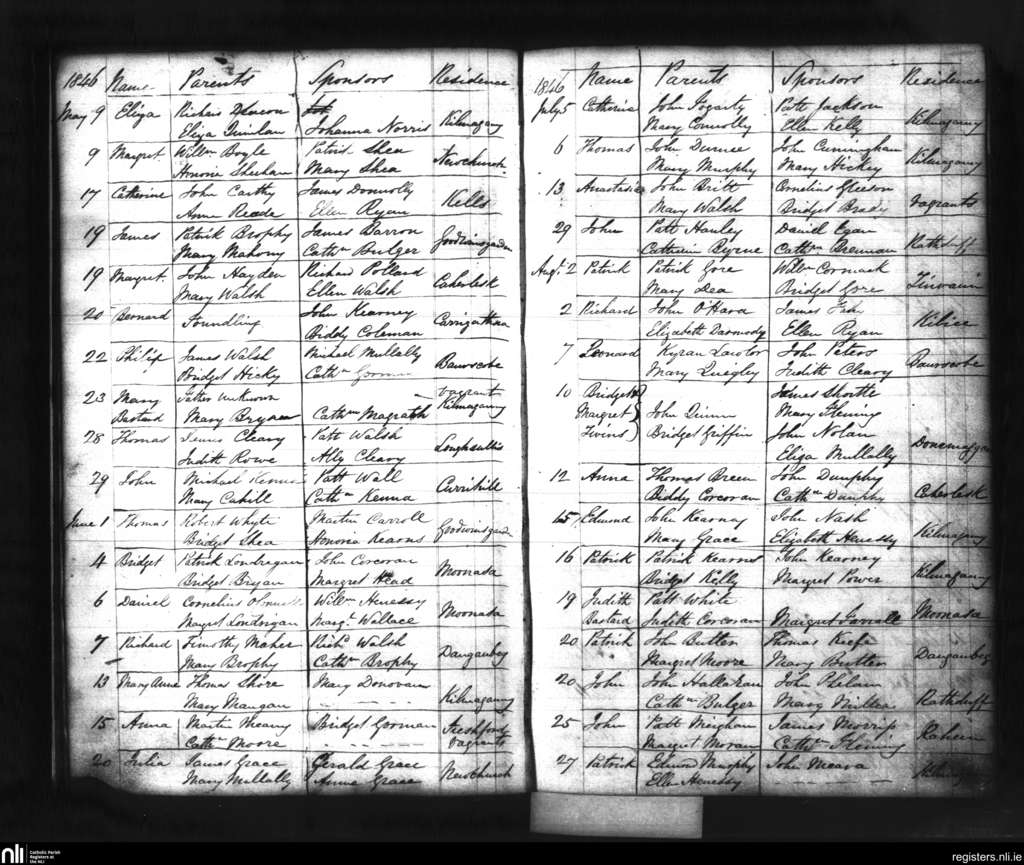 1846 Name Parents Sponsors Residence
May 9 Eliza Richard Deacon
Eliza Quinlan Johanna Norris Kilmagany
9 Margret Willm Boyle Patrick Shea Newchurch
Honoria Sheehan Mary Shea
17 Catherine John Carthy James Donnolly Kells
Anne Reade Ellen Ryan
19 James Patrick Brophy James Barron
Mary Mahony Cathn Bulger
19 Margret John Hayden Richard Pollard Caherlesk
Mary Walsh Ellen Walsh
20 Bernard Foundling John Kearney
Biddy Coleman
22 Philip James Walsh Michael Mullally
Bridget Hicky Cathn Gorman
23 Mary Father Unknown vagrant
Bastard Mary Bryan Cathn Magrath Kilmagany
28 Thomas James Cleary Patt Walsh
Judith Rowe Ally Cleary
29 John Michael Patt Wall
Mary Cahill Cathn Kenna
June 1 Thomas Robert Whyte Martin Carroll
Bridget Shea Honoria Kearns
4 Bridget Patrick Londregan John Corcoran Moonada
Bridget Bryan Margret Head
6 Daniel Cornelius Willm Henessy Moonada
Margret Londrigan Margt Wallace
7 Richard Timothy Maher Richd Walsh Dauganbeg
Mary Brophy Cathn Brophy
13 Mary Anne Thomas Shore Mary Donovan Kilmagany
Mary Mangan
15 Anna Martin Bridget Gorman Freshford
Cathn Moore vagrants
20 Julia James Grace Gerald Grace Newchurch
Mary Mullally Anne Grace
1846 Name Parents Sponsors Residence
July 5 Catherine John Fogarty Patt Jackson Kilmagany
Mary Connolly Ellen Kelly
6 Thomas John Durnee John Cuningham Kilmagany
Mary Murphy Mary Hickey
13 Anastasia John Britt Cornelius Gleeson vagrants
Mary Walsh Bridget
29 John Patt Hanley Daniel Egan
Catherin Byrne Cathn Brennan
Augt 2 Patrick Patrick Gore Willm Cormack
Mary Dea Bridget Gore
2 Richard John O'Hara James
Elizabeth Darmody Ellen Ryan
7 Leonard Kyran Lawlor John Peters
Mary Quigley Judith Cleary
10 Bridget James Shortle
Margret John Quinn Mary Fleming
Twins Bridget Griffin John Nolan
Eliza Mullally
12 Anna Thomas Breen John Dunphy Caherlesk
Biddy Corcoran Cathn Dunphy
15 Edmond John Kearney John Nash Kilmagany
Mary Grace Elizabeth Henessy
16 Patrick Patrick Kearns John Kearney Kilmagany
Bridget Kelly Margret Power
19 Judith Patt White
Bastard Judith Corcoran Margret Farrall Moonada
20 Patrick John Butler Thomas Keefe Dauganbeg
Margret Moore Mary Butler
20 John John Hallaran John Phelan
Cathn Bulger Mary Millea
25 John Patt Meighan James Morris Raheen
Margret Moran Cathn Fleming
27 Patrick Edmond Murphy John Meara
Ellen Henessy
nli Catholic Parish
Registers at
the NLI
registers.nli.ie